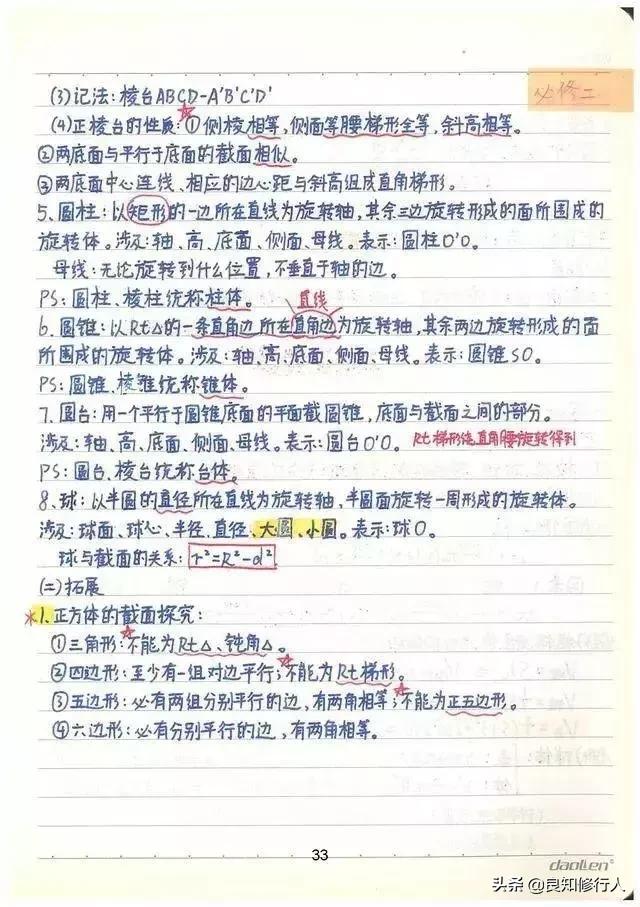 必修二
(3)记法:棱台ABCD-A'B'C'D'
(4)正棱台的性质:①侧棱相等,侧面等腰梯形全等,斜高相等。
②两底面与平行于底面的截面相似。
③两底面中心连线、相应的边心距与斜高组成直角梯形。
5、圆柱:以矩形的一边所在直线为旋转轴,其余三边旋转形成的面所围成的
旋转体。涉及:轴、高、底面、侧面、母线。表示:圆柱O'O。
母线:无论旋转到什么位置,不垂直于轴的边。
PS:圆柱、棱柱统称柱体。
直线
6、圆锥:以Rt△的一条直角边所在直角边为旋转轴,其余两边旋转形成的面
所围成的旋转体。涉及:轴、高、底面、侧面、母线。表示:圆锥SO。
PS:圆锥、棱锥统称锥体。
7、圆台:用一个平行于圆锥底面的平面截圆锥,底面与截面之间的部分。
涉及:轴、高、底面、侧面、母线。表示:圆台O'O。 Rt梯形绕直角腰旋转得到
PS:圆台、棱台统称台体。
8、球:以半圆的直径所在直线为旋转轴,半圆面旋转一周形成的旋转体。
涉及:球面、球心、半径、直径、大圆、小圆。表示:球O。
球与截面的关系:r²=R²-d²
(二)拓展
*1、正方体的截面探究:
①三角形:不能为Rt△、钝角△。
②四边形:至少有一组对边平行;不能为Rt梯形。
③五边形:必有两组分别平行的边,有两角相等;不能为正五边形。
④六边形:必有分别平行的边,有两角相等。
33
daolen
头条 @良知修行人